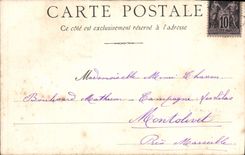 CARTE POSTALE
Ce côté est exclusivement réservé à l'adresse
10
Mademoiselle
Boulevard Campagne
Montolivet
Près Marseille